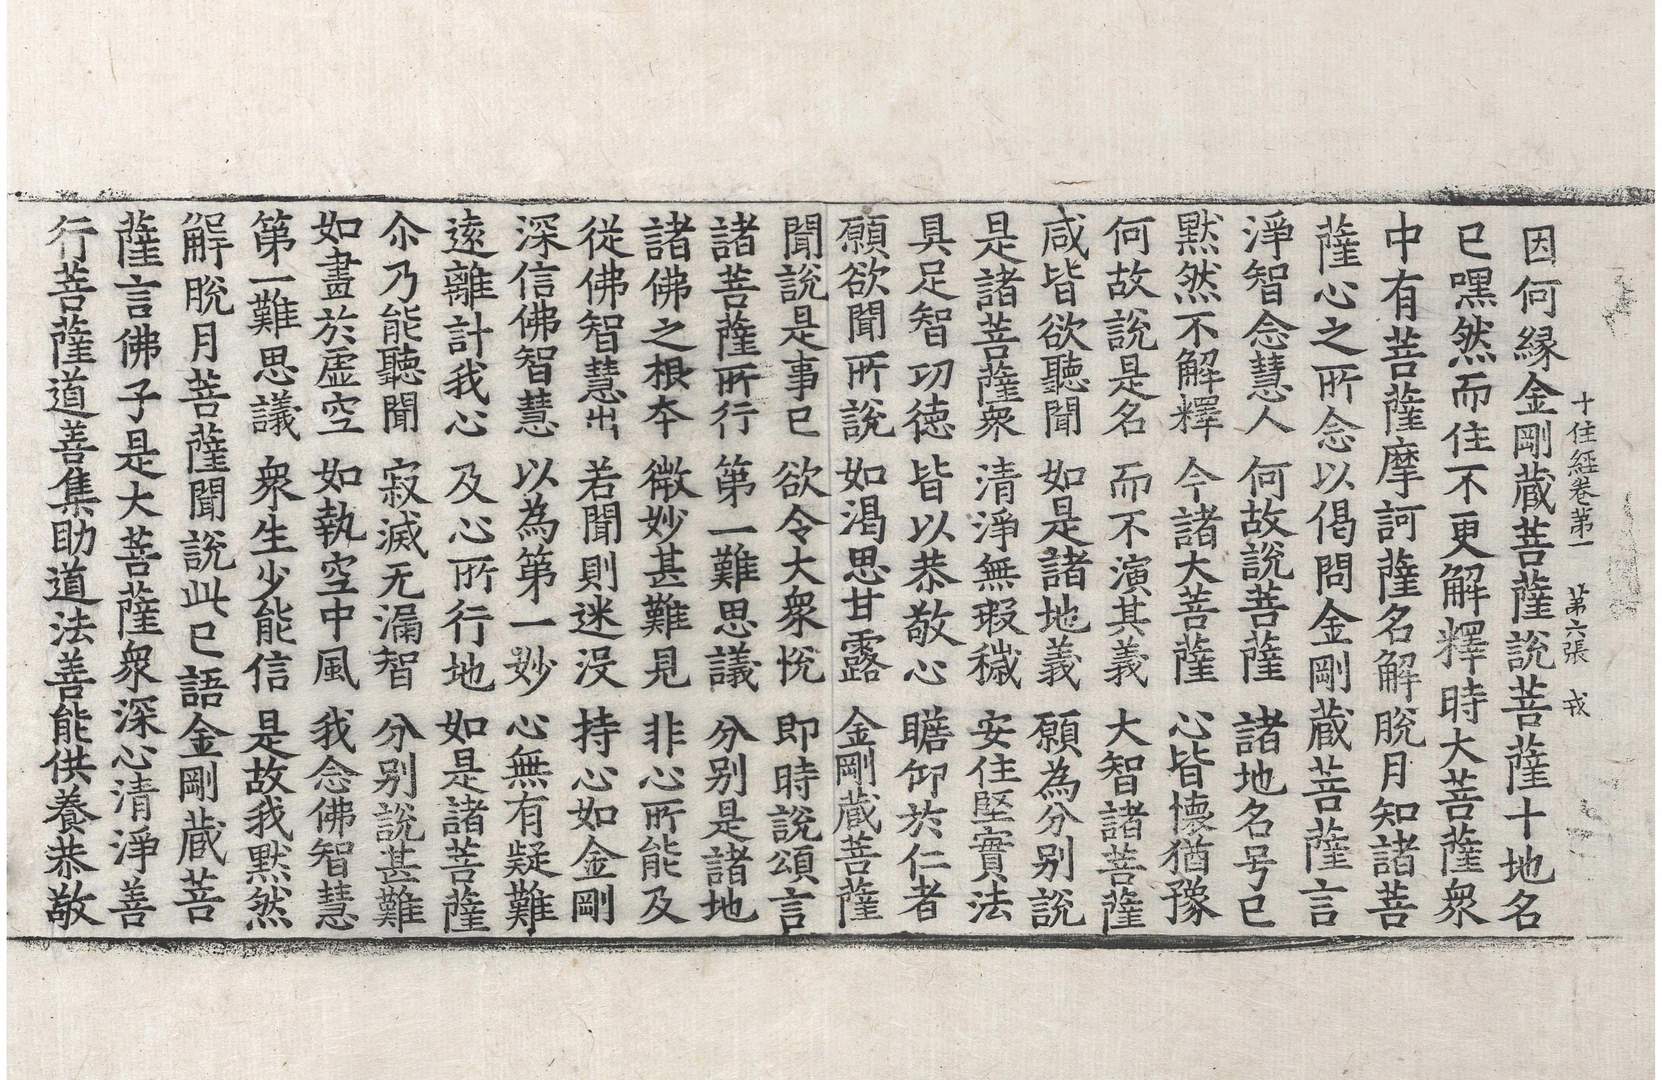 十住經卷第一　第六張　戎
因何縁金剛蔵菩薩說菩薩十地名
已嘿然而住不更解釋時大菩薩衆
中有菩薩摩訶薩名解脫月知諸菩
薩心之所念以偈問金剛蔵菩薩言
淨智念慧人　何故說菩薩　諸地名号已
黙然不解釋　今諸大菩薩　心皆懷猶豫
何故說是名　而不演其義　大智諸菩薩
咸皆欲聽聞　如是諸地義　願為分别說
是諸菩薩衆　清淨無瑕穢　安住堅實法
具足智功徳　皆以恭敬心　瞻仰於仁者
願欲聞所說　如渴思甘露　金剛蔵菩薩
聞說是事已　欲令大衆悅　即時說頌言
諸菩薩所行　第一難思議　分别是諸地
諸佛之根夲　微妙甚難見　非心所能及
從佛智慧出　若聞則迷没　持心如金剛
深信佛智慧　以為第一妙　心無有疑難
遠離計我心　及心所行地　如是諸菩薩
尒乃能聽聞　寂滅无漏智　分别說甚難
如畫於虛空　如執空中風　我念佛智慧
第一難思議　衆生少能信　是故我黙然
解脫月菩薩聞說此已語金剛蔵菩
薩言佛子是大菩薩衆深心清淨善
行菩薩道善集助道法善能供養恭敬